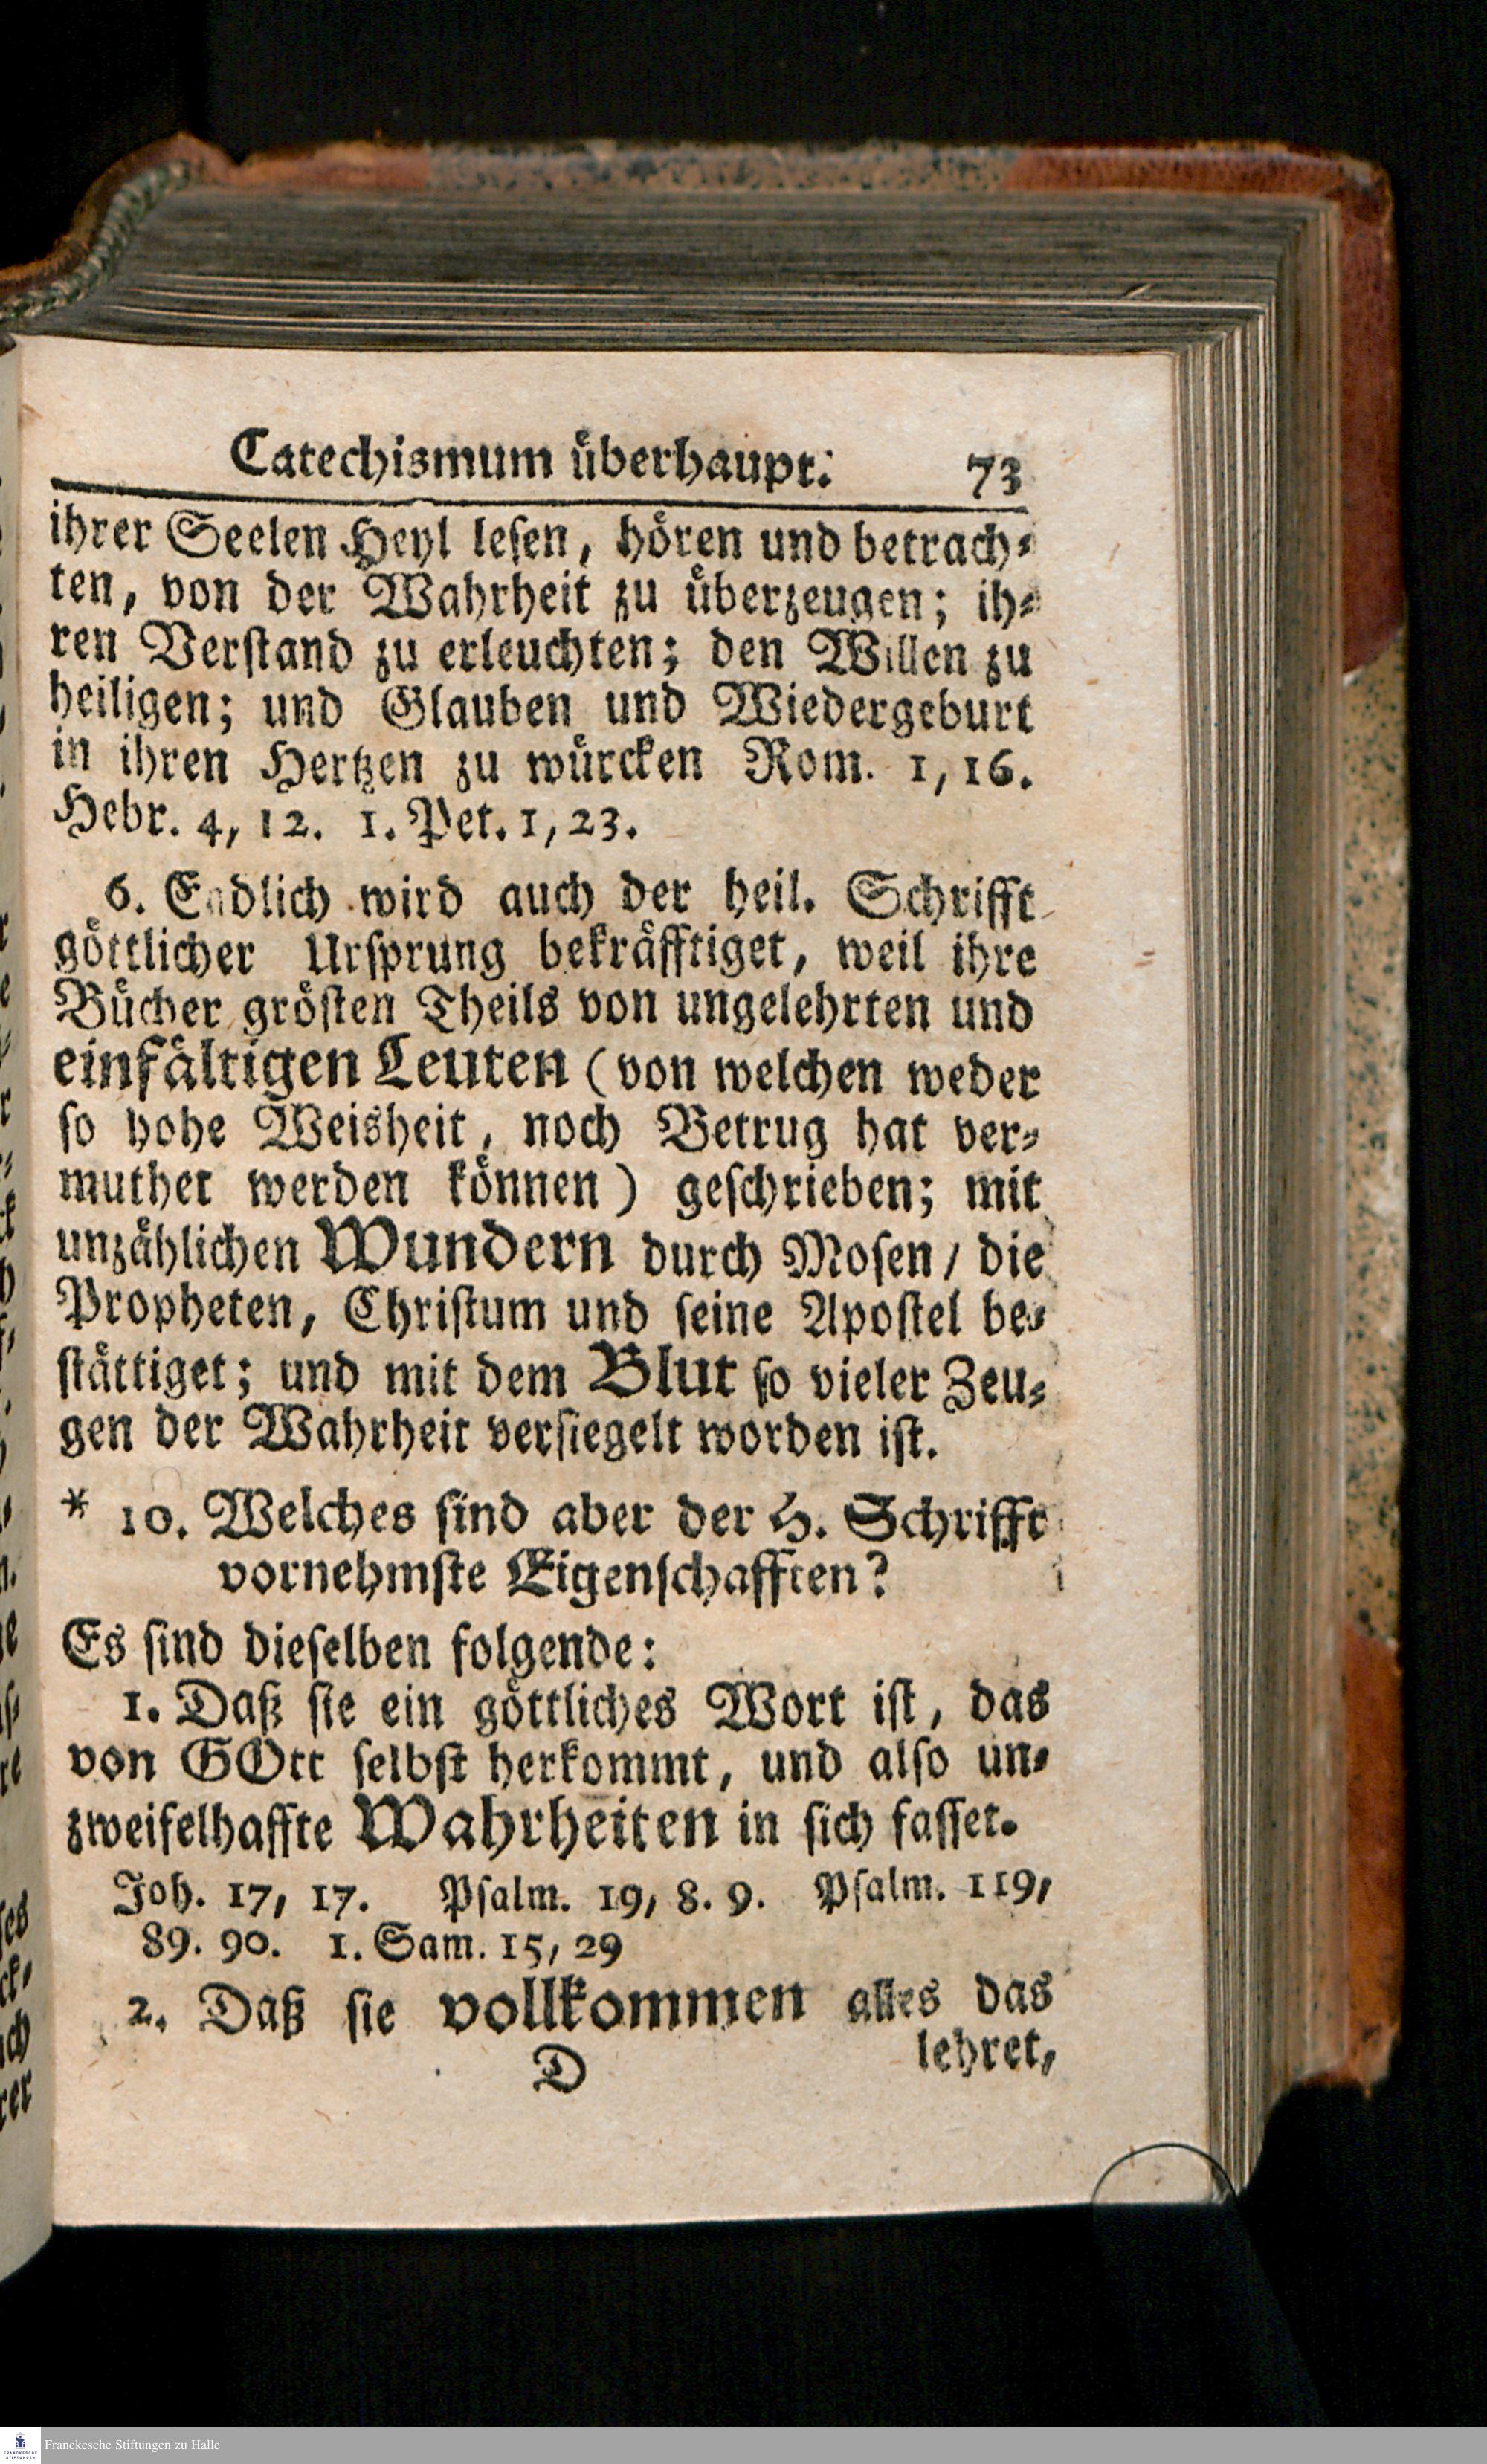 Catechismum überhaupt. 73
ihrer Seelen Heyl leſen, hören und betrach⸗
ten, von der Wahrheit zu überzeugen; ih⸗
ren Verſtand zu erleuchten; den Willen zu
heiligen; und Glauben und Wiedergeburt
in ihren Hertzen zu würcken Rom. 1, 16.
Hebr. 4, 12. 1. Pet. 1, 23.
6. Endlich wird auch der heil. Schrifft
göttlicher Urſprung bekräfftiget, weil ihre
Bücher gröſten Theils von ungelehrten und
einfältigen Leuten (von welchen weder
ſo hohe Weisheit, noch Betrug hat ver⸗
muthet werden können) geſchrieben; mit
unzählichen Wundern durch Moſen / die
Propheten, Chriſtum und ſeine Apoſtel be⸗
ſtättiget; und mit dem Blut ſo vieler Zeu⸗
gen der Wahrheit verſiegelt worden iſt.
* 10. Welches ſind aber der H. Schrifft
vornehmſte Eigenſchafften?
Es ſind dieſelben folgende:
1. Daß ſie ein göttliches Wort iſt, das
von GOtt ſelbſt herkommt, und alſo un⸗
zweifelhaffte Wahrheiten in ſich faſſet.
Joh. 17, 17. Pſalm. 19, 8. 9. Pſalm. 119,
89. 90. 1. Sam. 15, 29
2. Daß ſie vollkommen alles das
D lehret,
Franckesche Stiftungen zu Halle